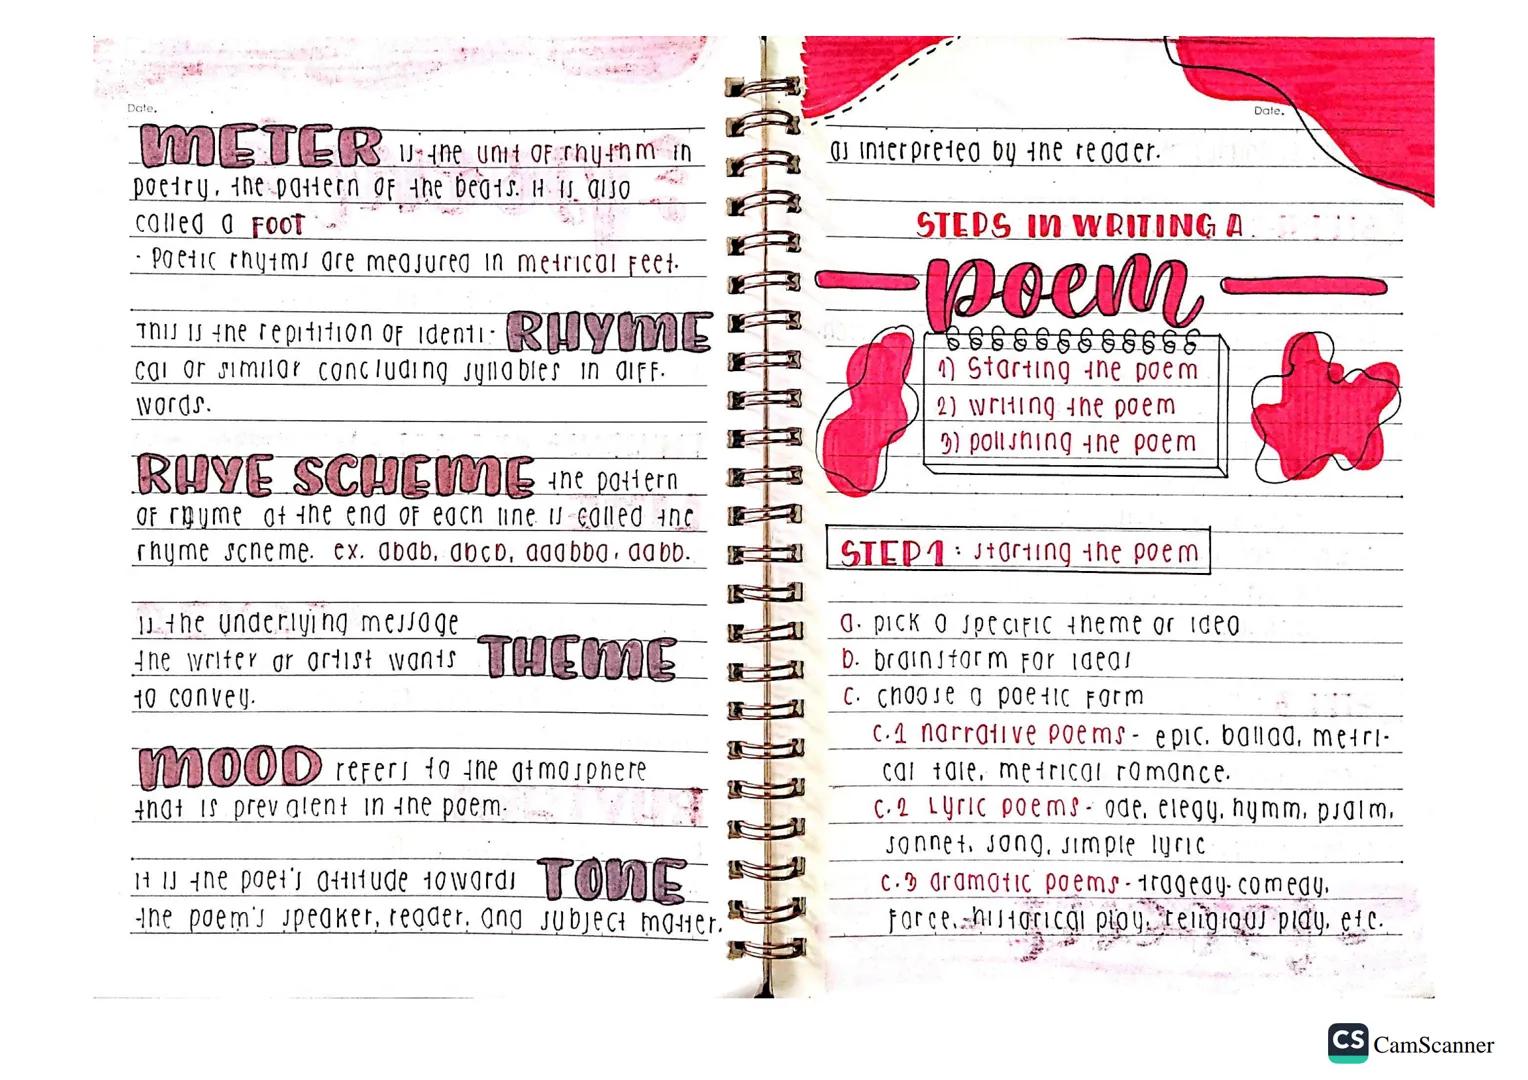 Date.
METER is the unit of rhythm in
poetry, the pattern of the beats. It is also
called a FOOT
- Poetic rhytms are measured in metrical feet.
This is the repitition of identi- RHYME
cal or similar concluding syllables in diff.
words.
RHYE SCHEME the pattern
of rhyme at the end of each line is called the
rhyme scheme. ex. abab, abcb, aabba, aabb.
is the underlying message
the writer or artist wants THEME
to convey.
MOOD refers to the atmosphere
that is prevalent in the poem.
it is the poet's attitude towards TONE
the poem's speaker, reader, and subject matter.
Date.
as interpreted by the reader.
STEPS IN WRITING A
poem
1) Starting the poem
2) writing the poem
3) polishing the poem
STEP 1: starting the poem
a. pick a specific theme or idea
b. brainstorm for ideas
c. choose a poetic form
c.1 narrative poems - epic, ballad, metri-
cal tale, metrical romance.
c.2 Lyric poems - ode, elegy, hymm, psalm,
sonnet, song, simple lyric
c.3 dramatic poems - tragedy-comedy,
farce, historical play, religious play, etc.
CS CamScanner